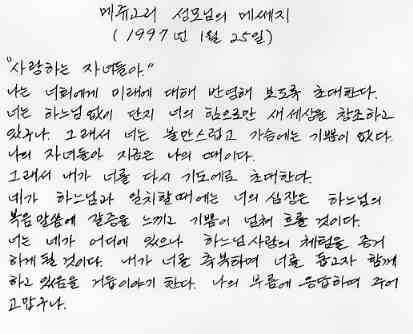 메쥬고리 성모님의 메세지
(1997년 1월 25일)
"사랑하는 자녀들아."
나는 너희에게 미래에 대해 반영해 보도록 초대한다.
너는 하느님 없이 단지 너의 힘으로만 새 세상을 창조하고
있구나. 그래서 너는 불만스럽고 가슴에는 기쁨이 없다.
나의 자녀들아 지금은 나의 때이다.
그래서 내가 너를 다시 기도에로 초대한다.
네가 하느님과 일치할 때에는 너의 심장은 하느님의
복음 말씀에 갈증을 느끼고 기쁨이 넘쳐 흐를 것이다.
너는 네가 어디에 있으나 하느님 사랑의 체험을 증거
하게 될 것이다. 내가 너를 축복하며 너를 돕고자 함께
하고 있음을 거듭 이야기 한다. 나의 부름에 응답하여 주어
고맙구나.